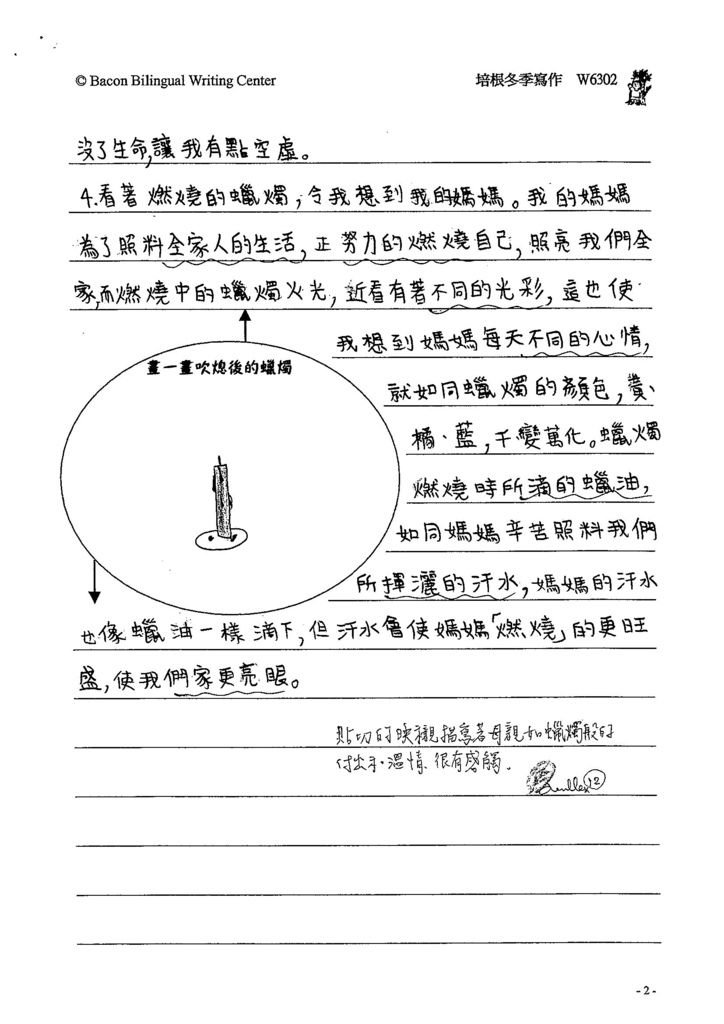 © Bacon Bilingual Writing Center 培根冬季寫作 W6302
沒了生命,讓我有點空虛。
4.看著燃燒的蠟燭,令我想到我的媽媽。我的媽媽
為了照料全家人的生活,正努力的燃燒自己,照亮我們全
家,而燃燒中的蠟燭火光,近看有著不同的光彩,這也使
我想到媽媽每天不同的心情,
畫一畫吹熄後的蠟燭
就如同蠟燭的顏色,黃、
橘、藍,千變萬化。蠟燭
燃燒時所滴的蠟油,
如同媽媽辛苦照料我們
所揮灑的汗水,媽媽的汗水
也像蠟油一樣滴下,但汗水會使媽媽「燃燒」的更旺
盛,使我們家更亮眼。
貼切的映襯描寫著母親如蠟燭般的
付出和溫情、很有感觸。
12
- 2 -